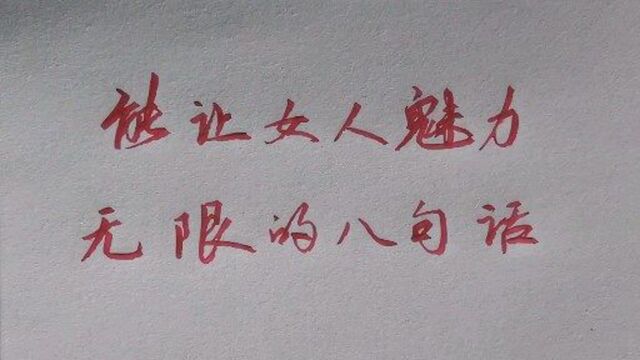 能让女人魅力
无限的八句话